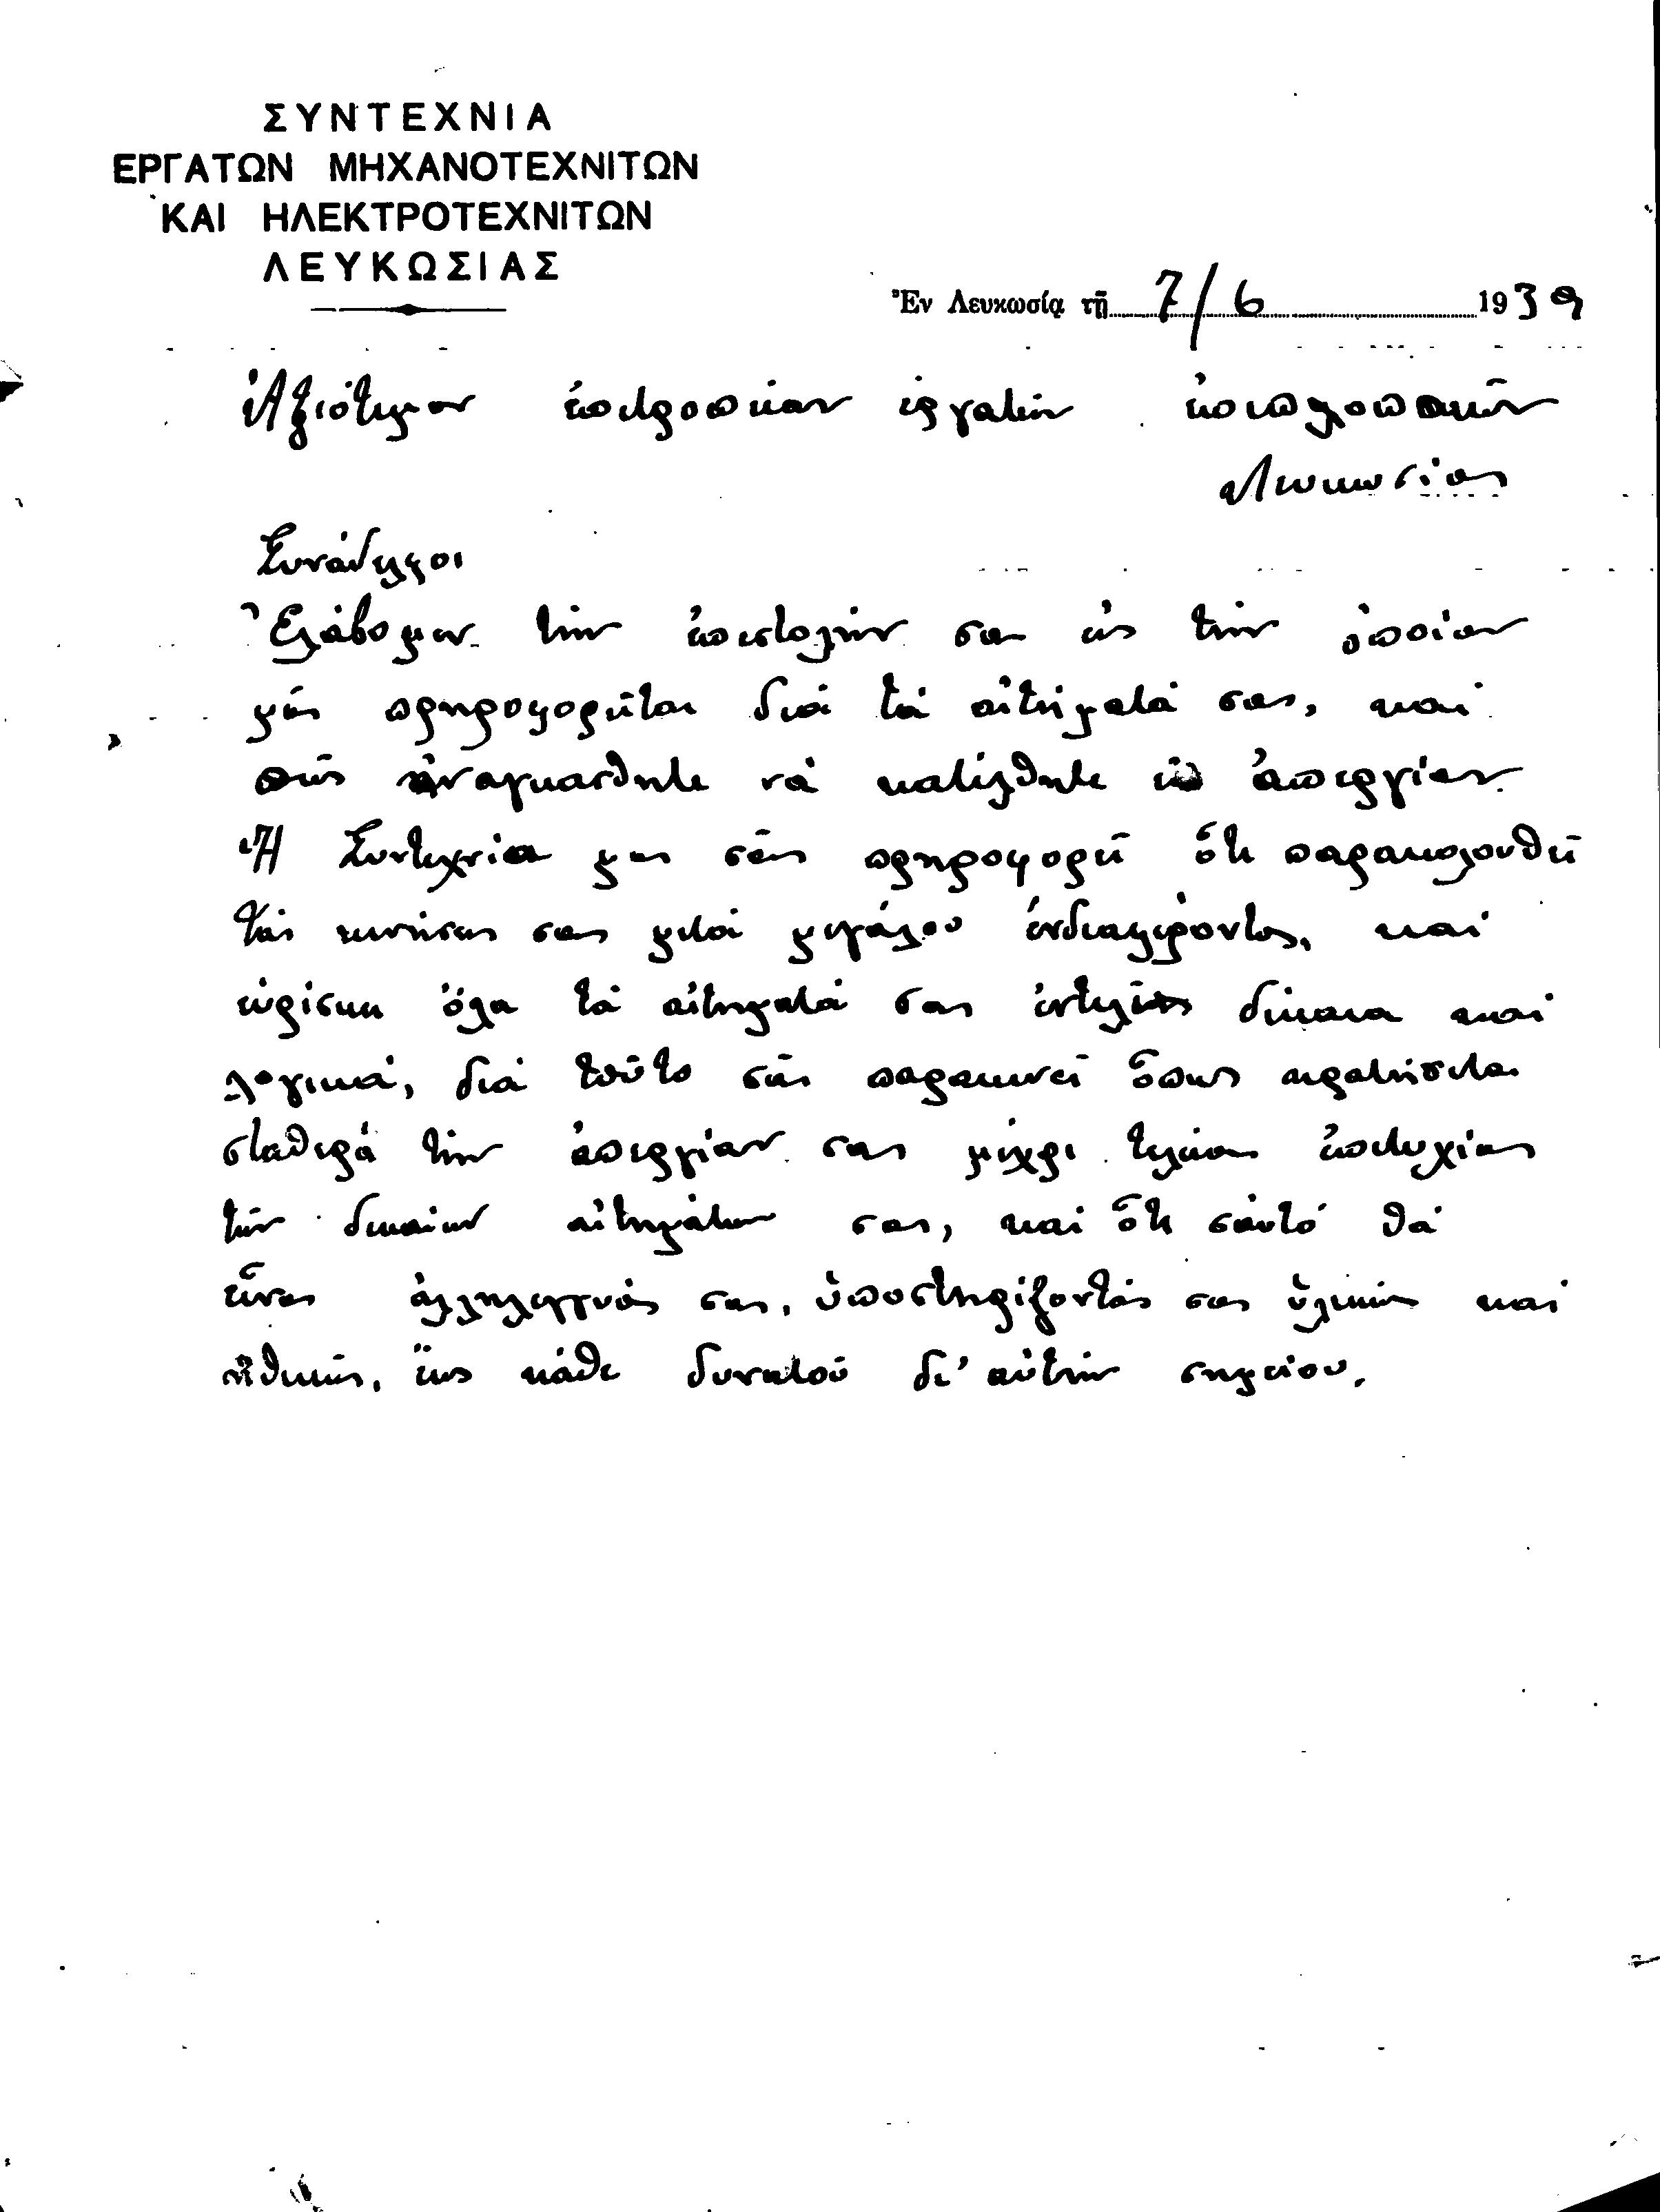 ΣΥΝΤΕΧΝΙΑ
ΕΡΓΑΤΩΝ ΜΗΧΑΝΟΤΕΧΝΙΤΩΝ
ΚΑΙ ΗΛΕΚΤΡΟΤΕΧΝΙΤΩΝ
ΛΕΥΚΩΣΙΑΣ
Ἐν Λευκωσίᾳ τῇ 7/6 1939
Ἀξιότιμον ἐπιτροπείαν ἐργατῶν
Λευκωσίας
Συνάδελφοι
Ἐλάβομεν τὴν ἐπιστολήν σας εἰς τὴν ὁποίαν
μᾶς πληροφορεῖται διὰ τὰ αἰτήματά σας, καὶ
πῶς ἀναγκασθητε νὰ κατέλθητε εἰς ἀπεργίαν.
Ἡ Συντεχνία μας σᾶς πληροφορεῖ ὅτι παρακολουθεῖ
τὰς κινήσεις σας μετὰ μεγάλου ἐνδιαφέροντος, καὶ
εὑρίσκει ὅλα τὰ αἰτηματά σας ἐντελῶς δίκαια καὶ
λογικά, διὰ τοῦτο σᾶς παρακινεῖ ὅπως κρατήσεται
σταθερὰ τὴν ἀπεργίαν σας μέχρι τελείας ἐπιτυχίας
τῶν δικαίων αἰτημάτων σας, καὶ ὅτι θὰ
εἶναι ἀλληλεγγυός σας, ὑποστηρίζοντάς σας ὑλικῶς καὶ
ἠθικῶς, ἕως κάθε δυνατοῦ δι' αὐτὴν σημείου.